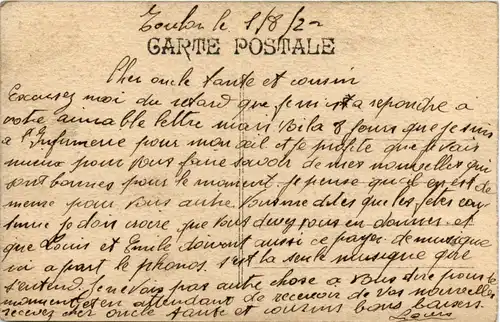 Toulon le 5/8/20
CARTE POSTALE
Cher oncle tante et cousin
Excusez moi du retard que j'ai mis a repondre a
votre aimable lettre mais Bila 8 jours que je suis
a l'Infirmerie pour mon œil et je profite que je vais
mieux pour vous faire savoir de mes nouvelles qui
sont bonnes pour le moment je pense quil en est de
meme pour vous autre Vous me dites que les fetes
je dois croire que vous devez vous en donner et
que Louis et Emile doivent aussi ce payer de musique
ici a part le phonos. s'est la seule musique que
s'entend Je ne vais pas autre chose a vous dire pour le
moment et en attendant de recevoir de vos nouvelles
recevez cher oncle tante et cousins bons baisers
Louis